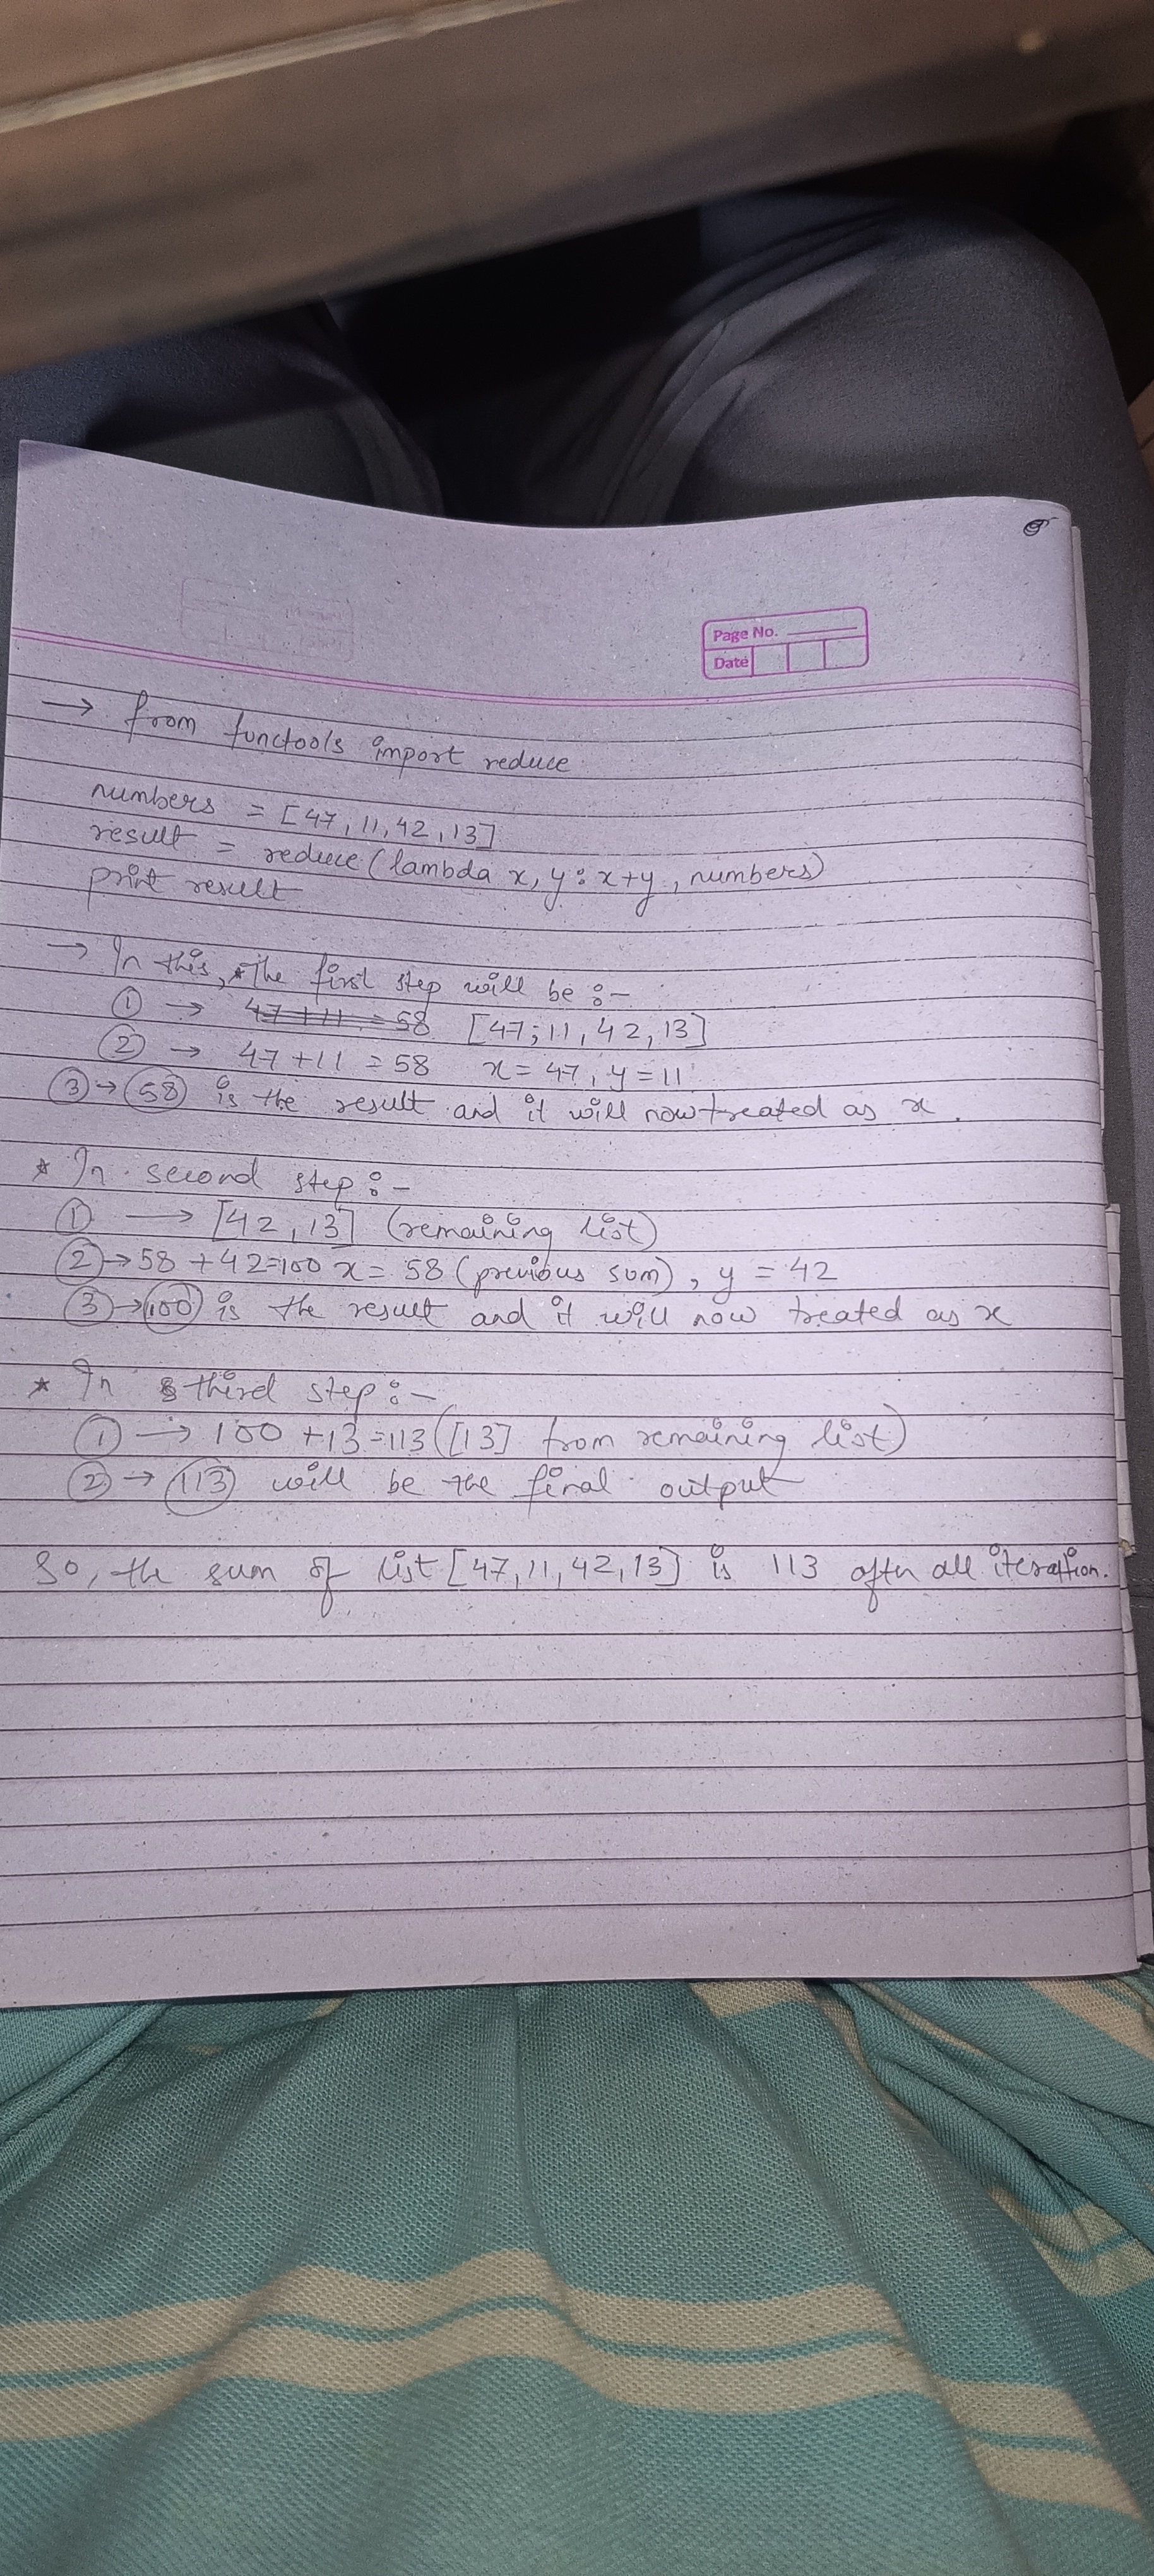 Page No.
Date
→ from functools import reduce
numbers = [47, 11, 42, 13]
result = reduce (lambda x, y : x+y, numbers)
print result
→ In this, The first step will be :-
① → 47 + 11 = 58 [47, 11, 42, 13]
② → 47 + 11 = 58 x = 47, y = 11
③ → 58 is the result and it will now treated as x.
* In second step :-
① → [42, 13] (remaining list)
② → 58 + 42 = 100 x = 58 (previous sum), y = 42
③ → 100 is the result and it will now treated as x
* In third step :-
① → 100 + 13 = 113 ([13] from remaining list)
② → 113 will be the final output
So, the sum of list [47, 11, 42, 13] is 113 after all iteration.